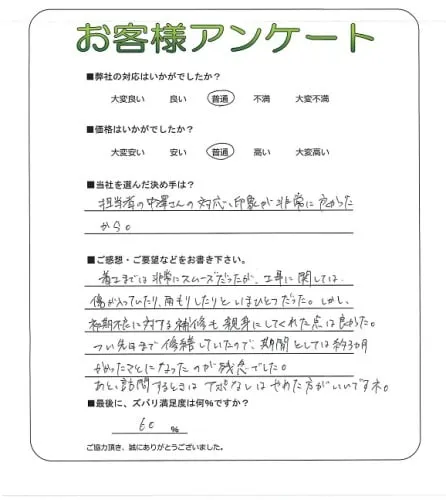 お客様アンケート
■弊社の対応はいかがでしたか?
大変良い 良い 普通 不満 大変不満
■価格はいかがでしたか?
大変安い 安い 普通 高い 大変高い
■当社を選んだ決め手は?
担当者の中澤さんの対応、印象が非常に良かった
から。
■ご感想・ご要望などをお書き下さい。
着工までは非常にスムーズだったが、工事に関しては
傷が入っていたり、雨もりしたりといまひとつだった。しかし、
初期不良に対する補修も親身にしてくれた点は良かった。
つい先日まで修繕していたので、期間としては約3か月
かかったことになったのが残念でした。
あと、訪問するときはアポなしはやめた方がいいですネ。
■最後に、ズバリ満足度は何%ですか?
60 %
ご協力頂き、誠にありがとうございました。